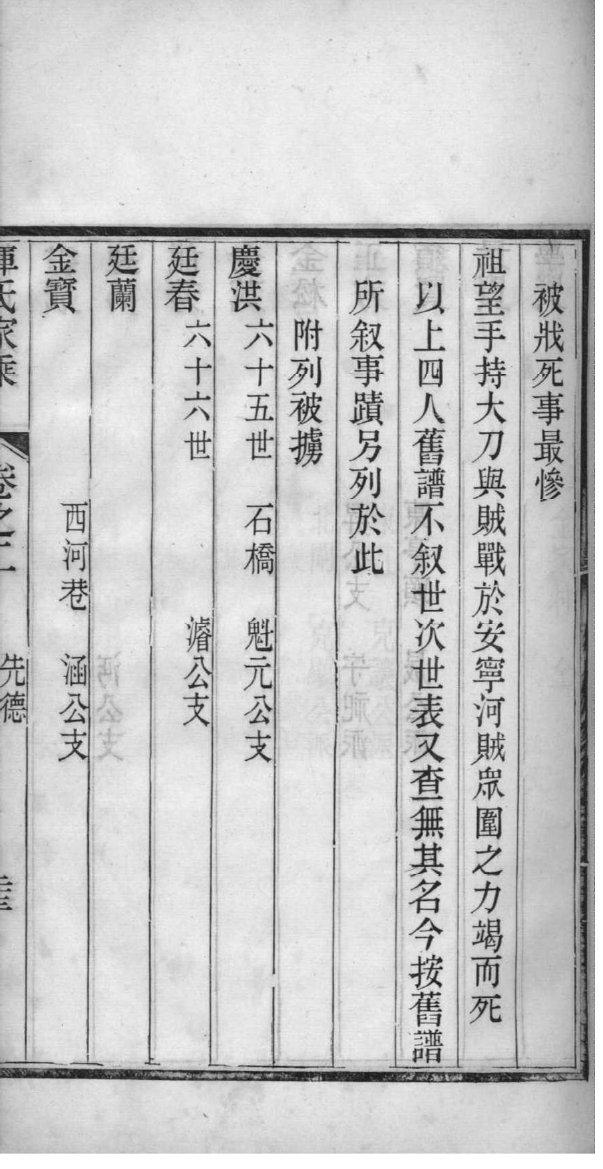 被戕死事最慘
祖望手持大刀與賊戰於安寧河賊眾圍之力竭而死
以上四人舊譜不叙世次世表又查無其名今按舊譜
所叙事蹟另列於此
附列被擄
慶洪 六十五世 石橋 魁元公支
廷春 六十六世 濬公支
廷蘭
金寶 西河巷 涵公支
惲氏家乘 卷之 先德